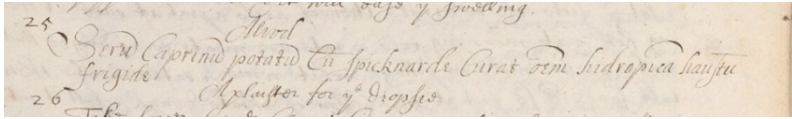 it will ease yͤ swelling.
25
Aliud
Serū Caprinū potatū Cū spicknarde Curat oēm hidropicā haustu
frigide
26 A plaister for yͤ dropsie